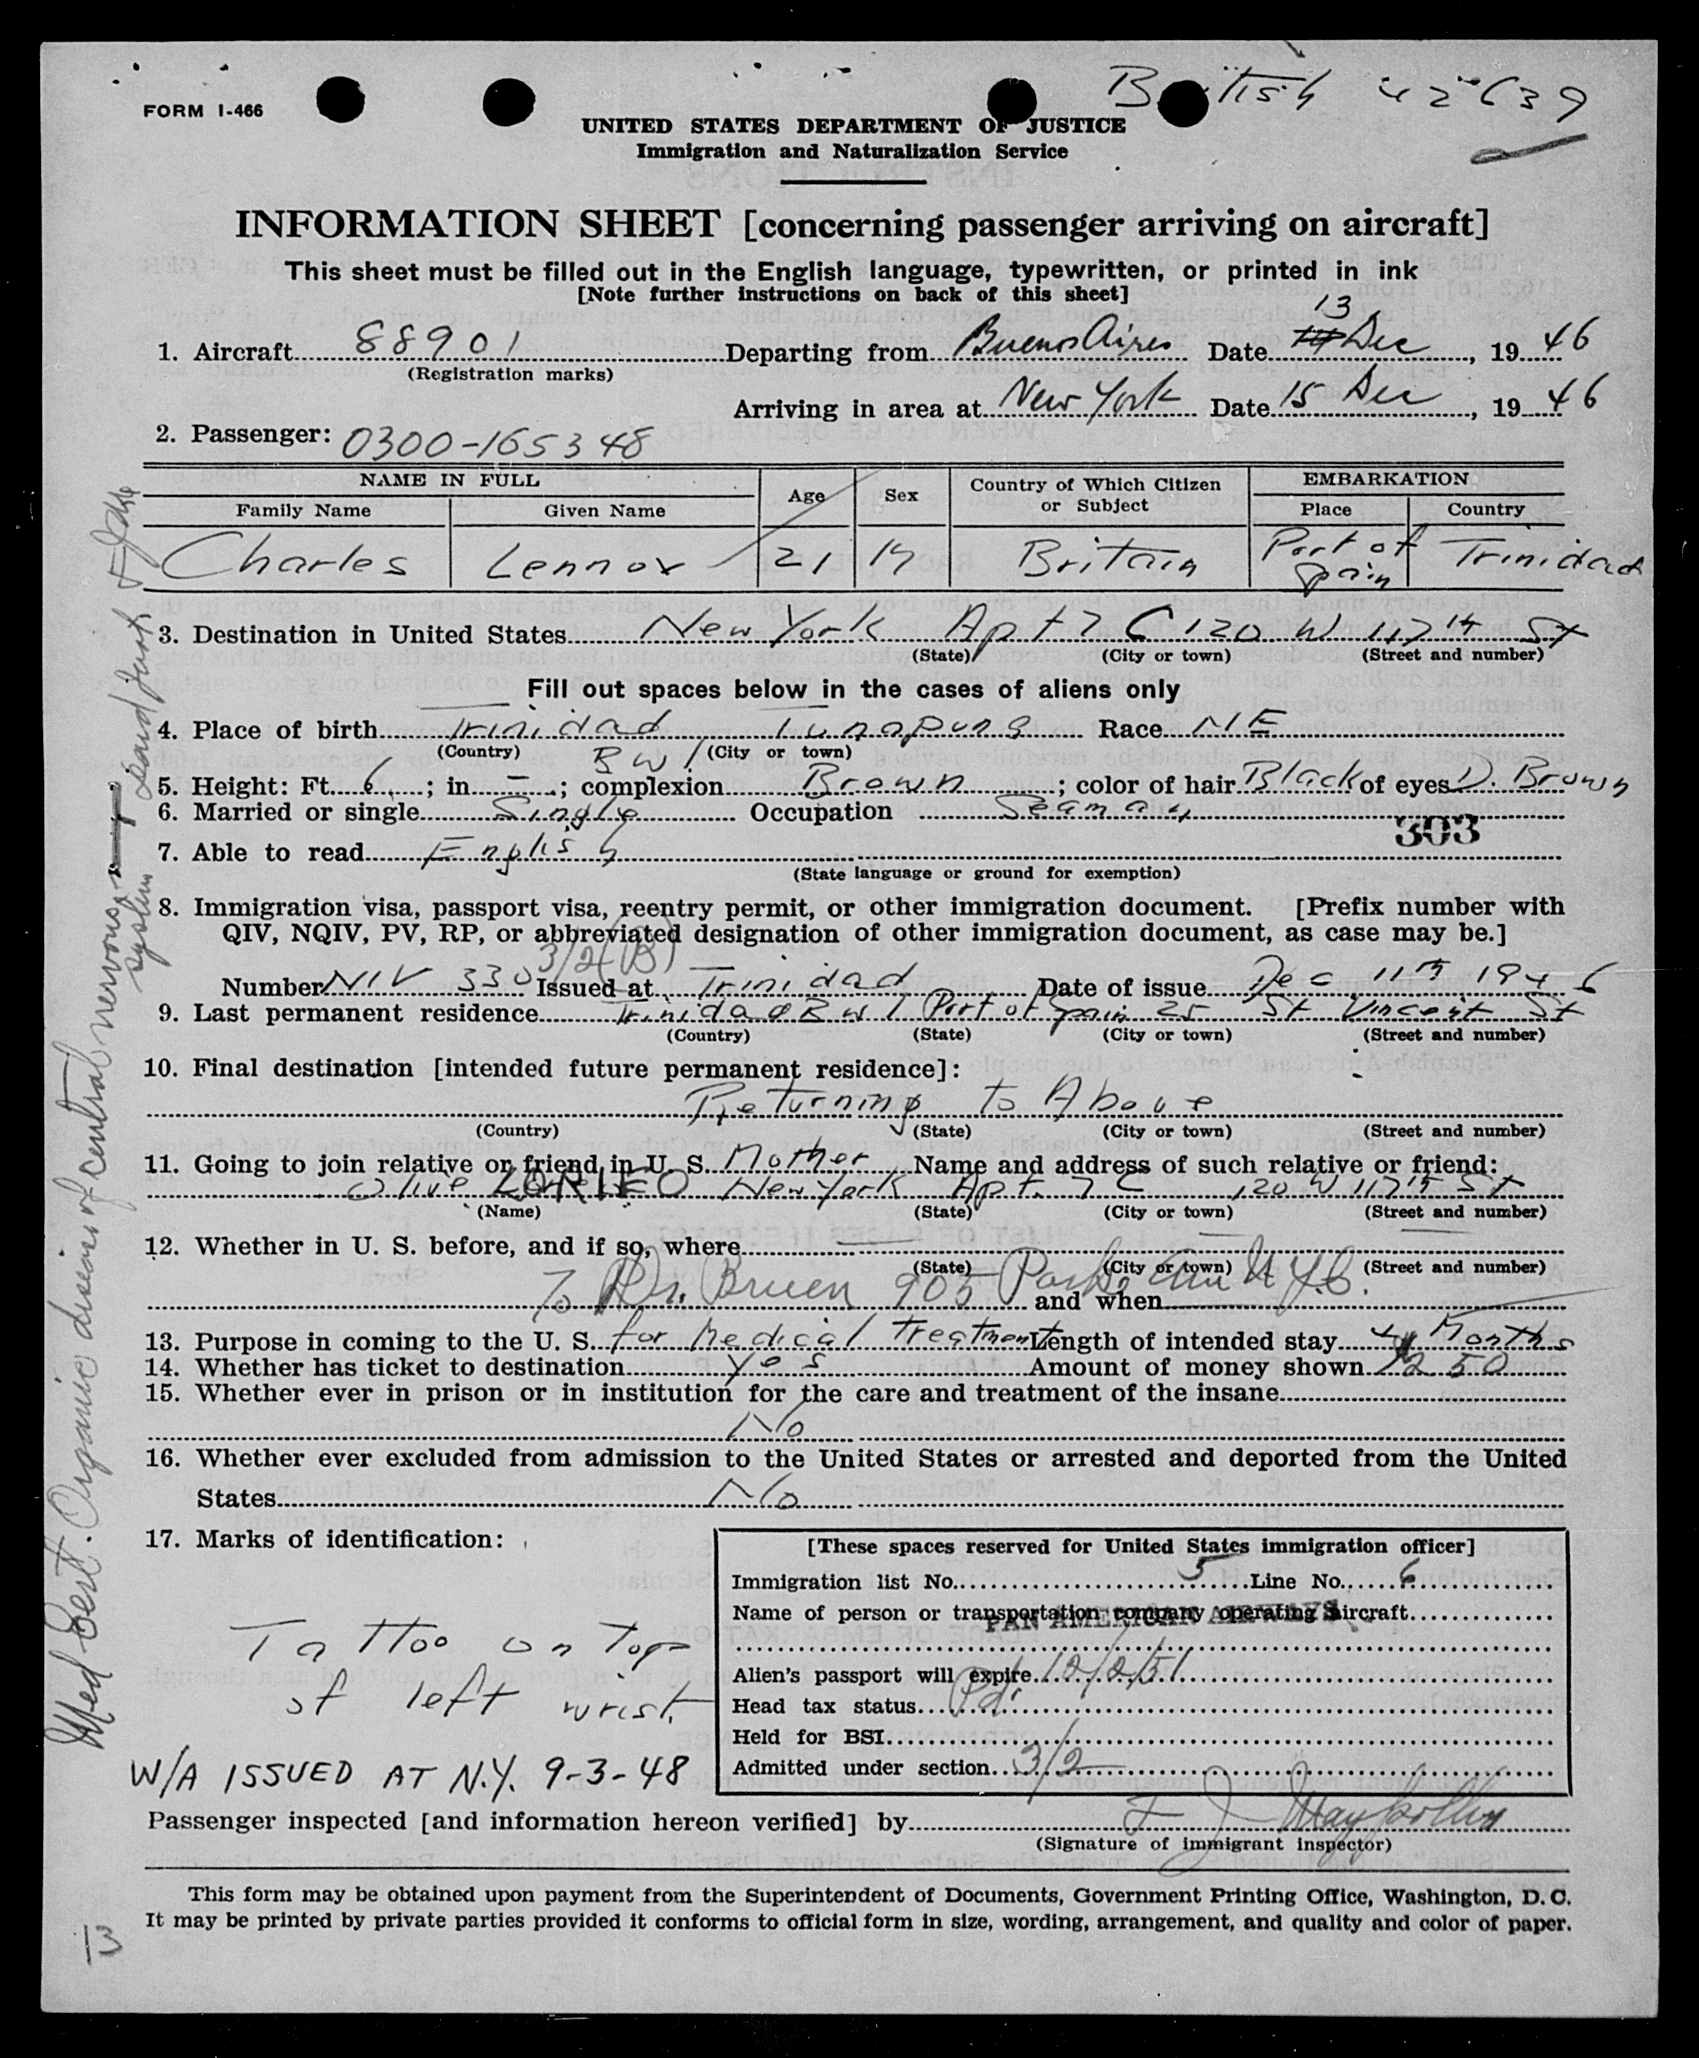 FORM I-466
British 42639
UNITED STATES DEPARTMENT OF JUSTICE
Immigration and Naturalization Service
INFORMATION SHEET [concerning passenger arriving on aircraft]
This sheet must be filled out in the English language, typewritten, or printed in ink
[Note further instructions on back of this sheet]
1. Aircraft 88901 Departing from Buenos Aires Date 13 Dec, 1946
(Registration marks)
Arriving in area at New York Date 15 Dec, 1946
2. Passenger: 0300-165348
NAME IN FULL Age Sex Country of Which Citizen or Subject EMBARKATION
Family Name Given Name Place Country
Charles Lennox 21 M Britain Port of Spain Trinidad
3. Destination in United States New York Apt 7 C 120 W 117th St
(State) (City or town) (Street and number)
Fill out spaces below in the cases of aliens only
4. Place of birth Trinidad Tunapuna Race NE
(Country) BWI (City or town)
5. Height: Ft. 6; in –; complexion Brown; color of hair Black of eyes D. Brown
6. Married or single Single Occupation Seaman
303
7. Able to read English
(State language or ground for exemption)
8. Immigration visa, passport visa, reentry permit, or other immigration document. [Prefix number with
QIV, NQIV, PV, RP, or abbreviated designation of other immigration document, as case may be.]
3/2(B)
Number NIV 330 Issued at Trinidad Date of issue Dec 11th 1946
9. Last permanent residence Trinidad BWI Port of Spain 25 St Vincent St
(Country) (State) (City or town) (Street and number)
10. Final destination [intended future permanent residence]:
Returning to Above
(Country) (State) (City or town) (Street and number)
11. Going to join relative or friend in U. S. Mother Name and address of such relative or friend:
Olive ZORIEO New York Apt. 7 C 120 W 117th St
(Name) (State) (City or town) (Street and number)
12. Whether in U. S. before, and if so, where
(State) (City or town) (Street and number)
To Dr. Bruen 905 Park Ave N.Y.C. and when
13. Purpose in coming to the U. S. for Medical Treatment Length of intended stay 4 Months
14. Whether has ticket to destination Yes Amount of money shown 250
15. Whether ever in prison or in institution for the care and treatment of the insane
No
16. Whether ever excluded from admission to the United States or arrested and deported from the United
States No
17. Marks of identification:
Tattoo on Top
of left wrist
W/A ISSUED AT N.Y. 9-3-48
[These spaces reserved for United States immigration officer]
Immigration list No. 5 Line No. 6
Name of person or transportation company operating aircraft
PAN AMERICAN AIRWAYS
Alien's passport will expire 12/2/51
Head tax status Pd.
Held for BSI
Admitted under section 3/2
Passenger inspected [and information hereon verified] by
(Signature of immigrant inspector)
This form may be obtained upon payment from the Superintendent of Documents, Government Printing Office, Washington, D. C.
It may be printed by private parties provided it conforms to official form in size, wording, arrangement, and quality and color of paper.
Med Cert. Organic disease of central nervous
system